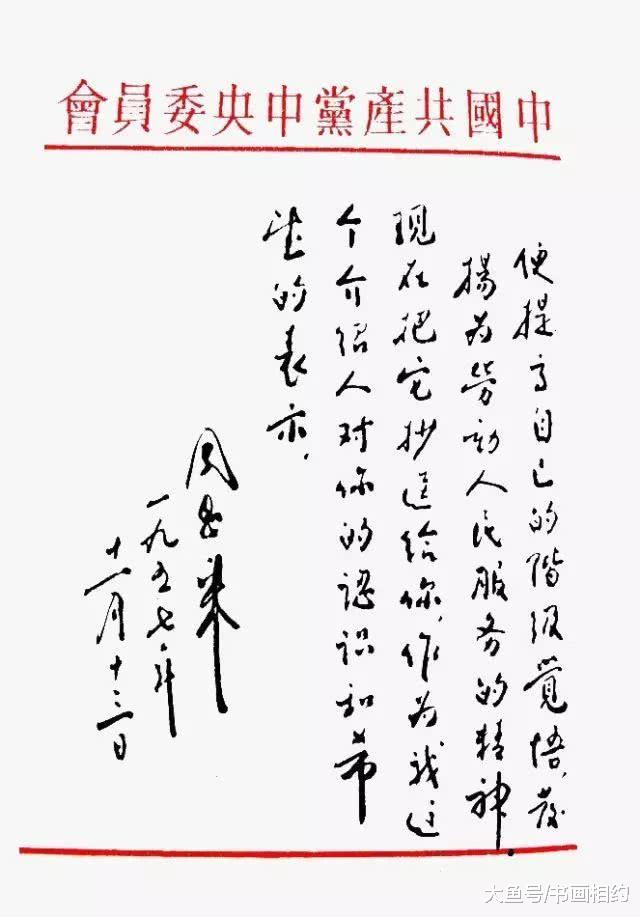 中國共產黨中央委員會
便提高自己的階級覺悟，發
揚为勞动人民服务的精神。
現在把它抄送给你，作为我这
个介绍人对你的認识和希
望的表示。
周恩来
一九五七年
十一月十三日
大鱼号/书画相约